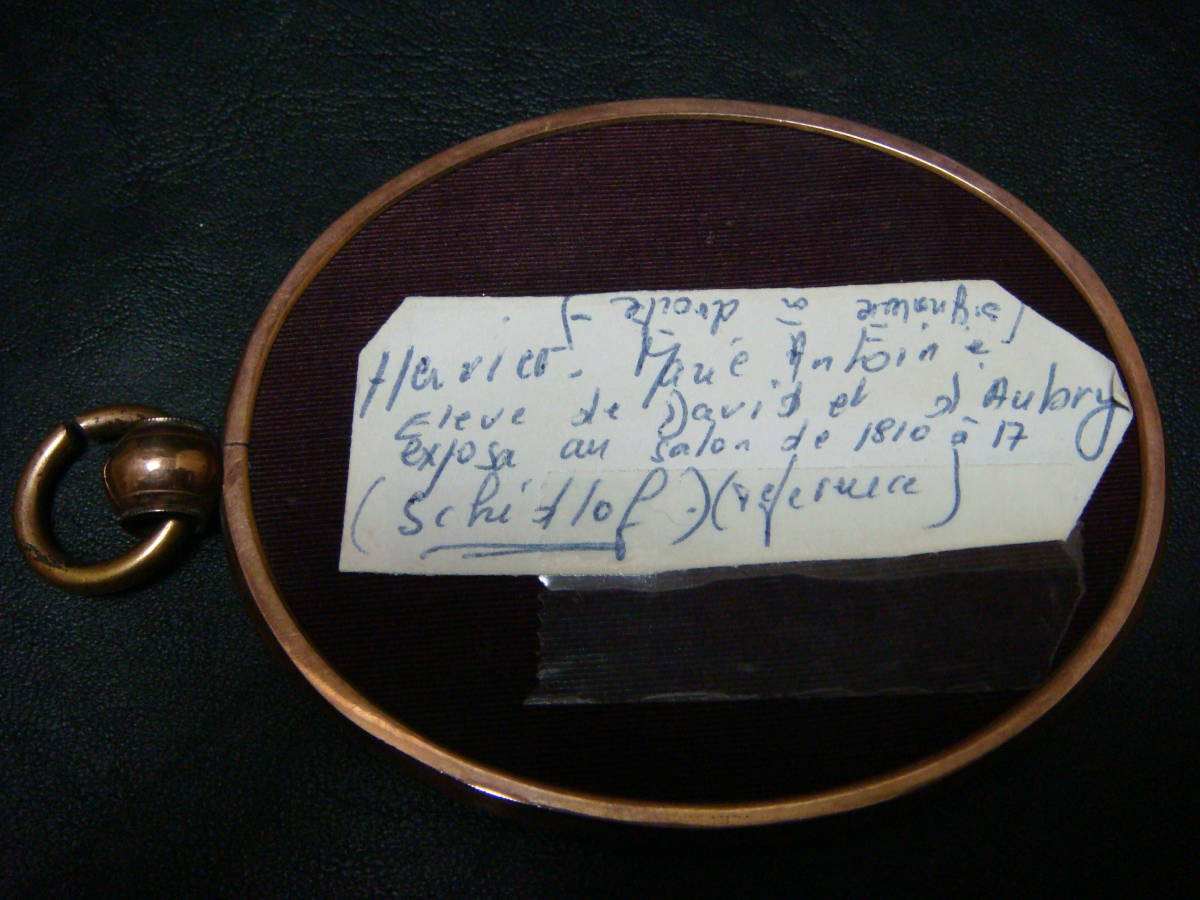 (signature à droite)
Hervier. Paul Antoine
Eleve de David et d'Aubry
exposa au salon de 1810 à 17
(Schidlof.) (reference)